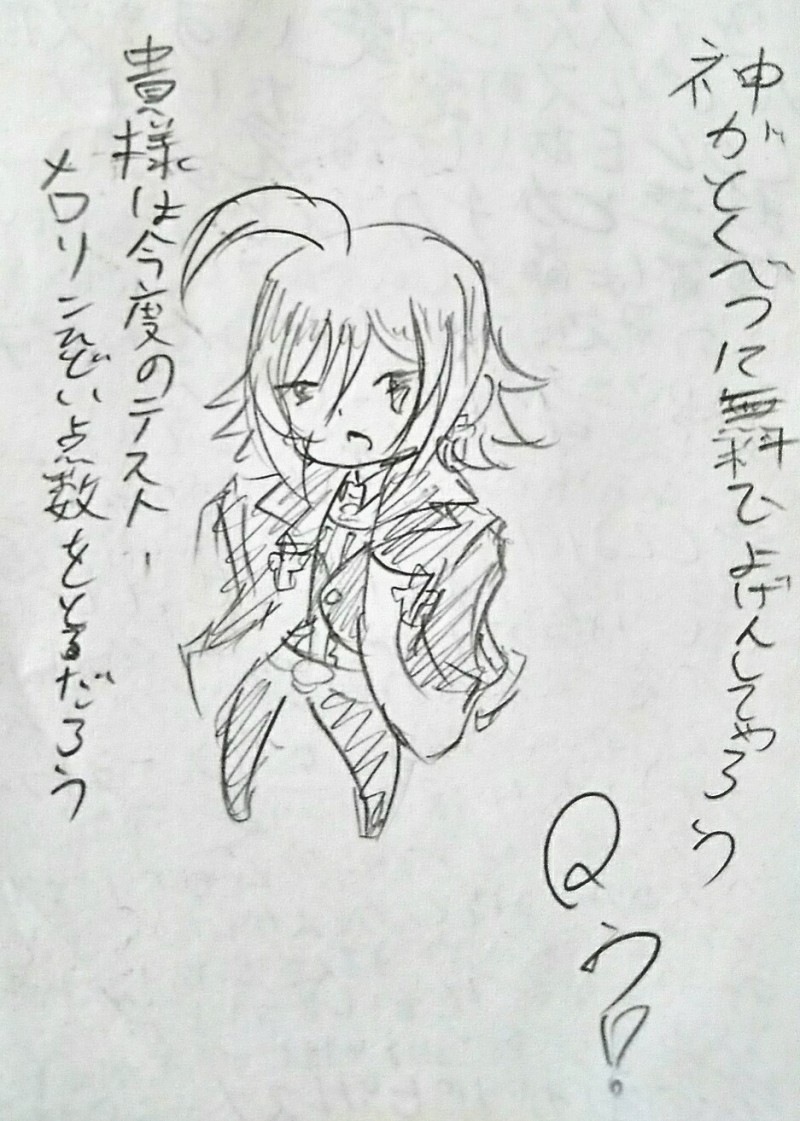 神がとくべつに無料でよげんしてやろう
Qう!
貴様は今度のテスト
メロリンひどい点数をとるだろう